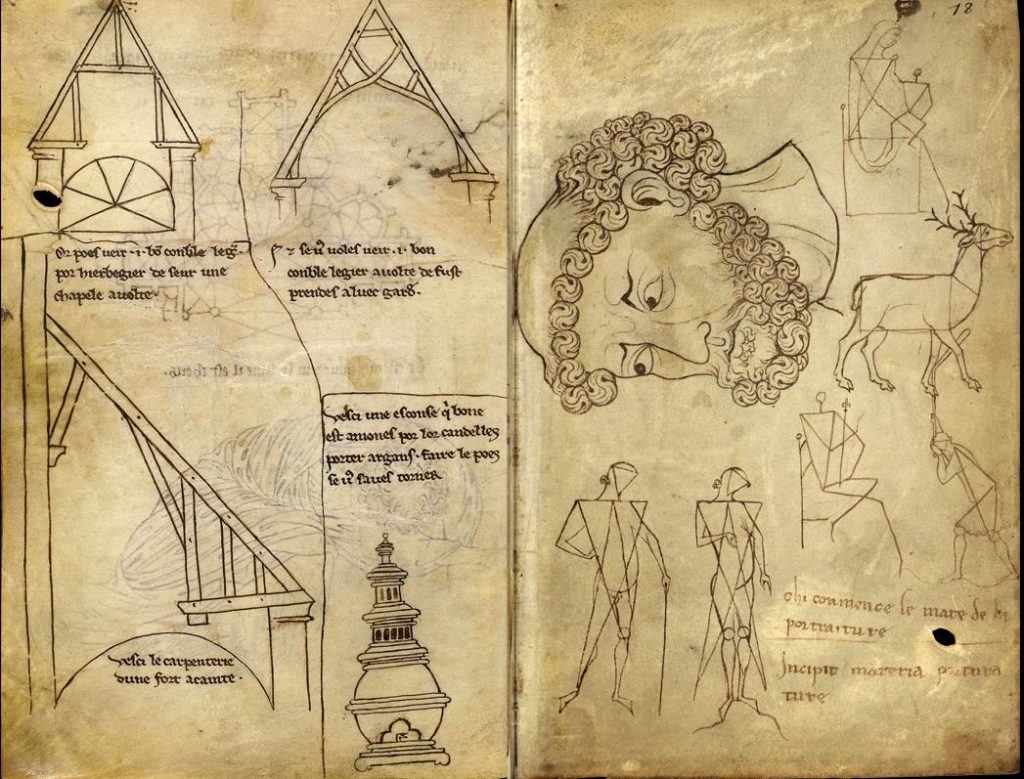 Or poes veir · i · bō conble leg̃
por herbegier de seur une
chapele avolte ·
⁊ se ṽ voles veir · i · bon
conble legier avolte de fust
prendes aluec gard ·
vesci une esconse q̃ bone
est amones por lor candelles
porter argans · faire le poes
se ṽ saves torner
vesci le carpenterie
dune fort acainte ·
18
chi conmence le mate de la
portraiture
Incipit materia portura
ture